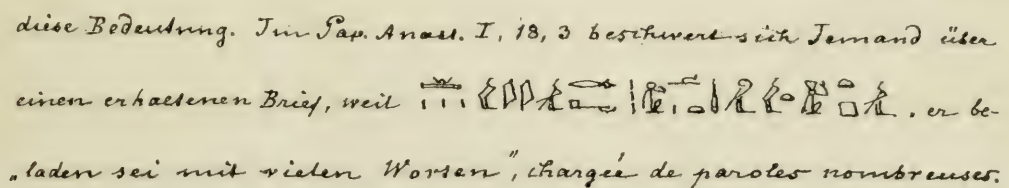 diese Bedeutung. Im Pap. Anast. I, 18, 3 beschwert sich Jemand über
einen erhaltenen Brief, weil . er be-
„laden sei mit vielen Worten“, chargée de paroles nombreuses.